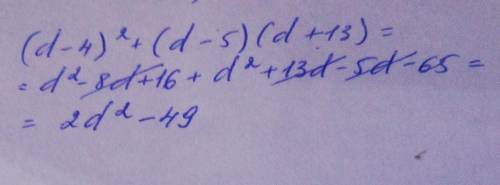 (d-4)² + (d-5)(d+13) =
= d² - 8d + 16 + d² + 13d - 5d - 65 =
= 2d² - 49